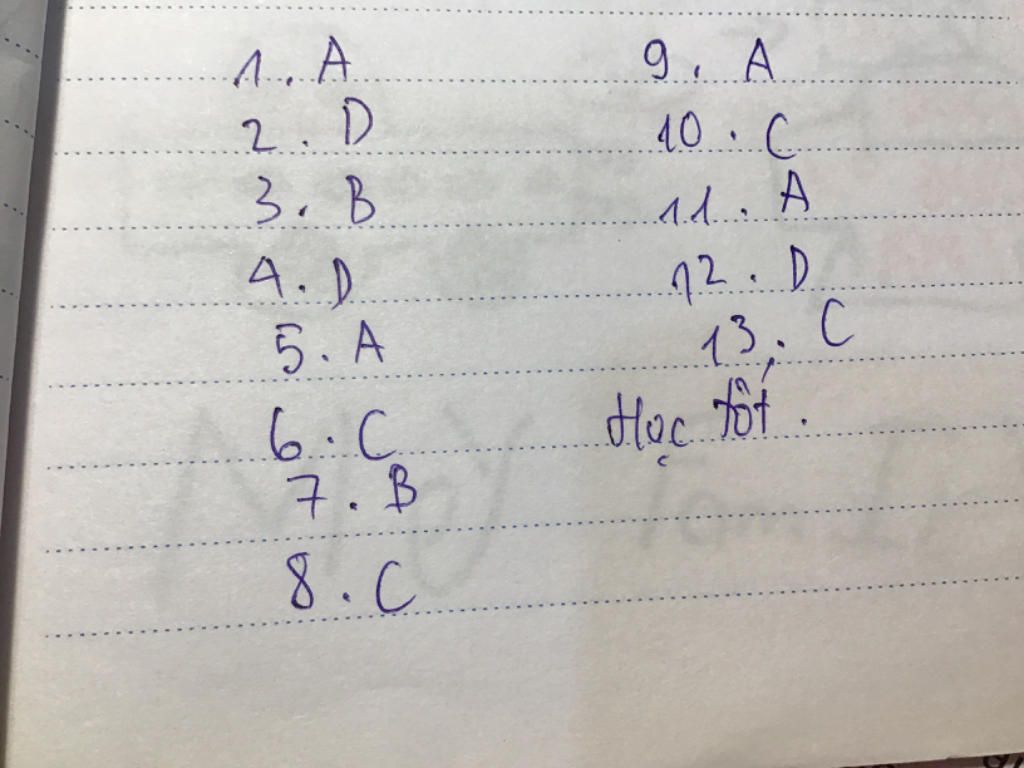 1. A
2. D
3. B
4. D
5. A
6. C
7. B
8. C
9. A
10. C
11. A
12. D
13. C
Học tốt.